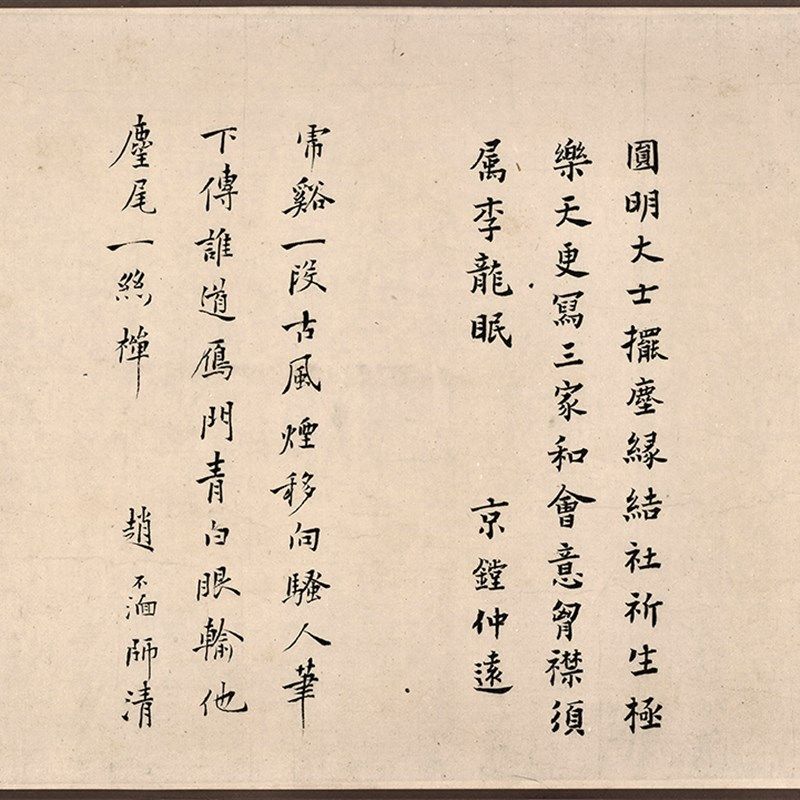 圓明大士擺塵緣結社祈生極
樂天更寫三家和會意胷襟須
属李龍眠
京鏜仲遠
虎谿一段古風煙移向騷人筆
下傳誰道鴈門青白眼輸他
麈尾一絲禪
趙不湎師清